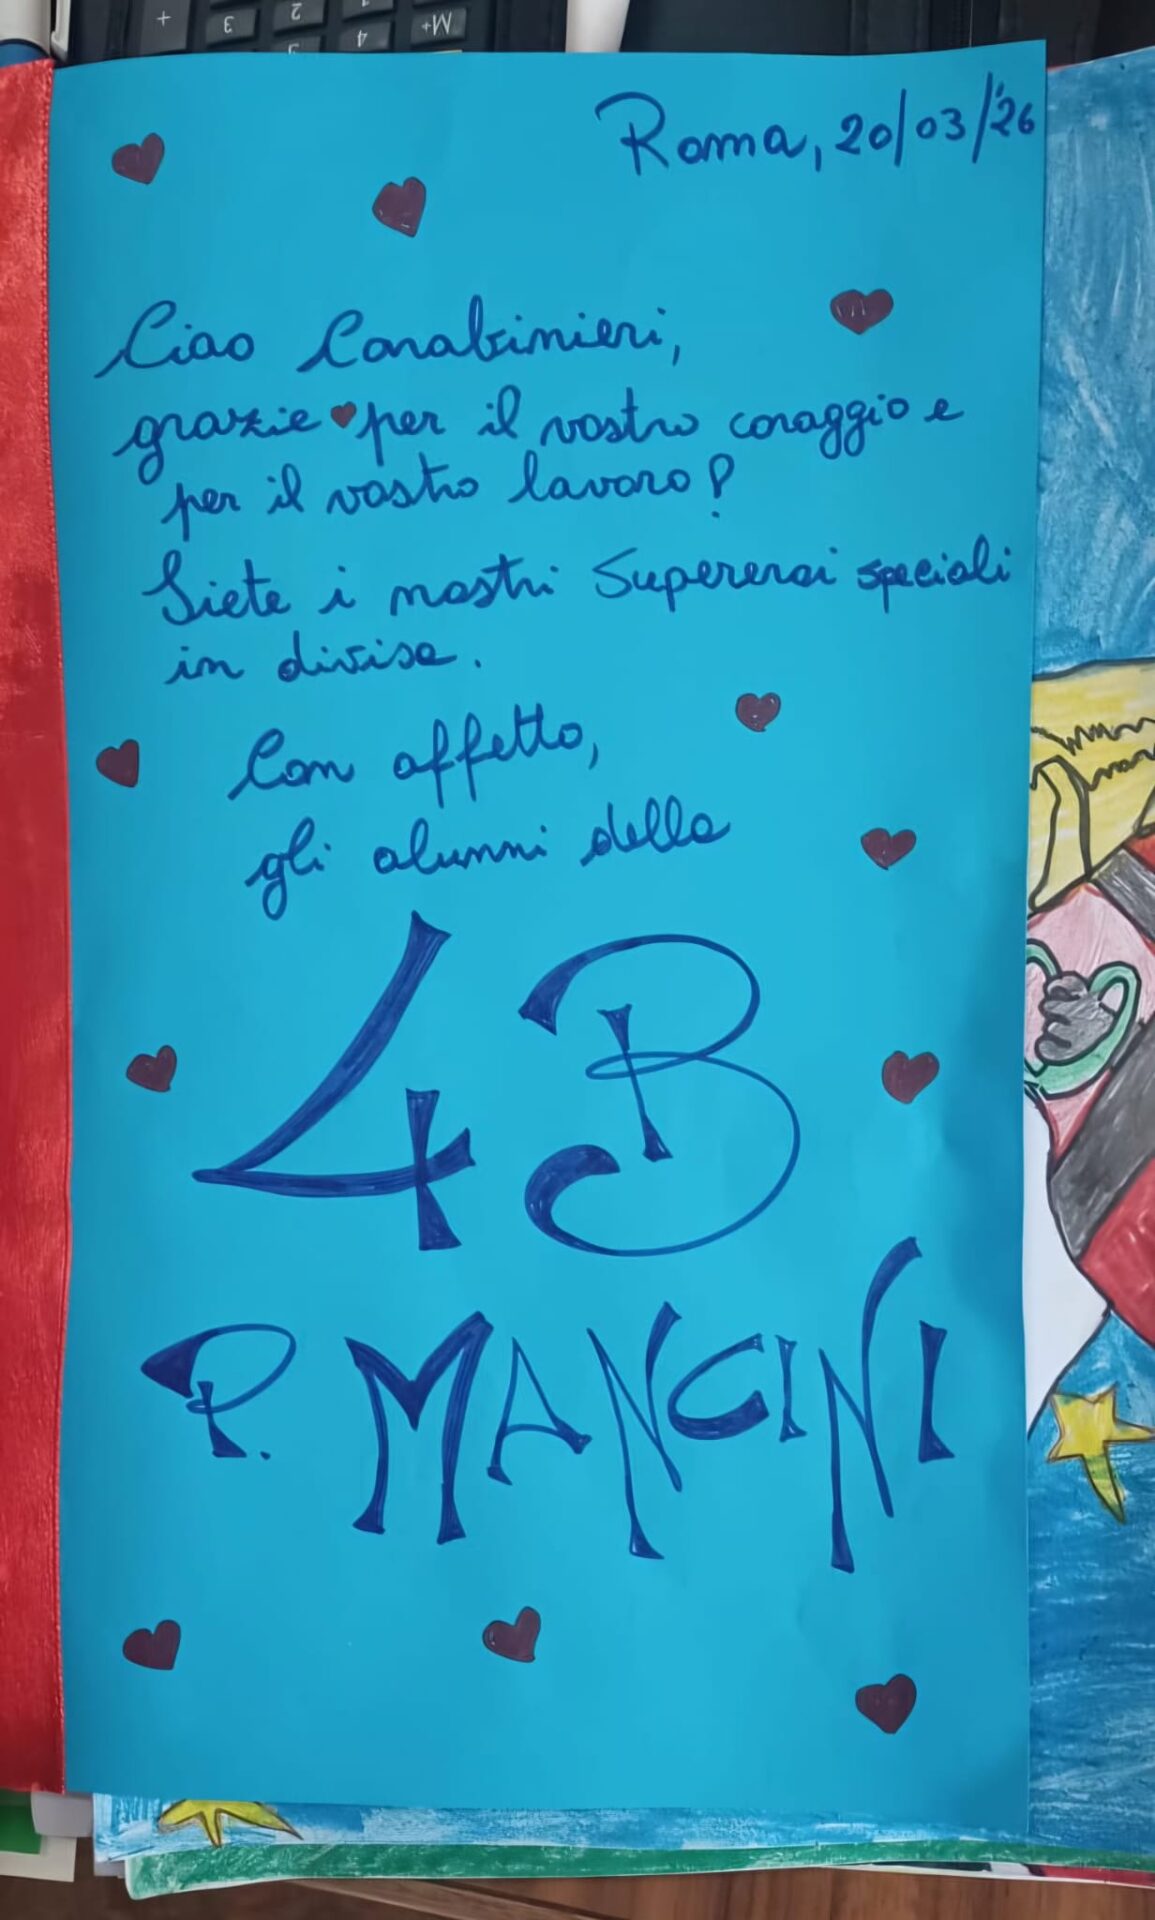 +
3
2
1
M+
4
5
Roma, 20/03/'26
Ciao Carabinieri,
grazie per il vostro coraggio e
per il vostro lavoro!
Siete i nostri Supereroi speciali
in divisa.
Con affetto,
gli alunni della
4B
P. MANCINI